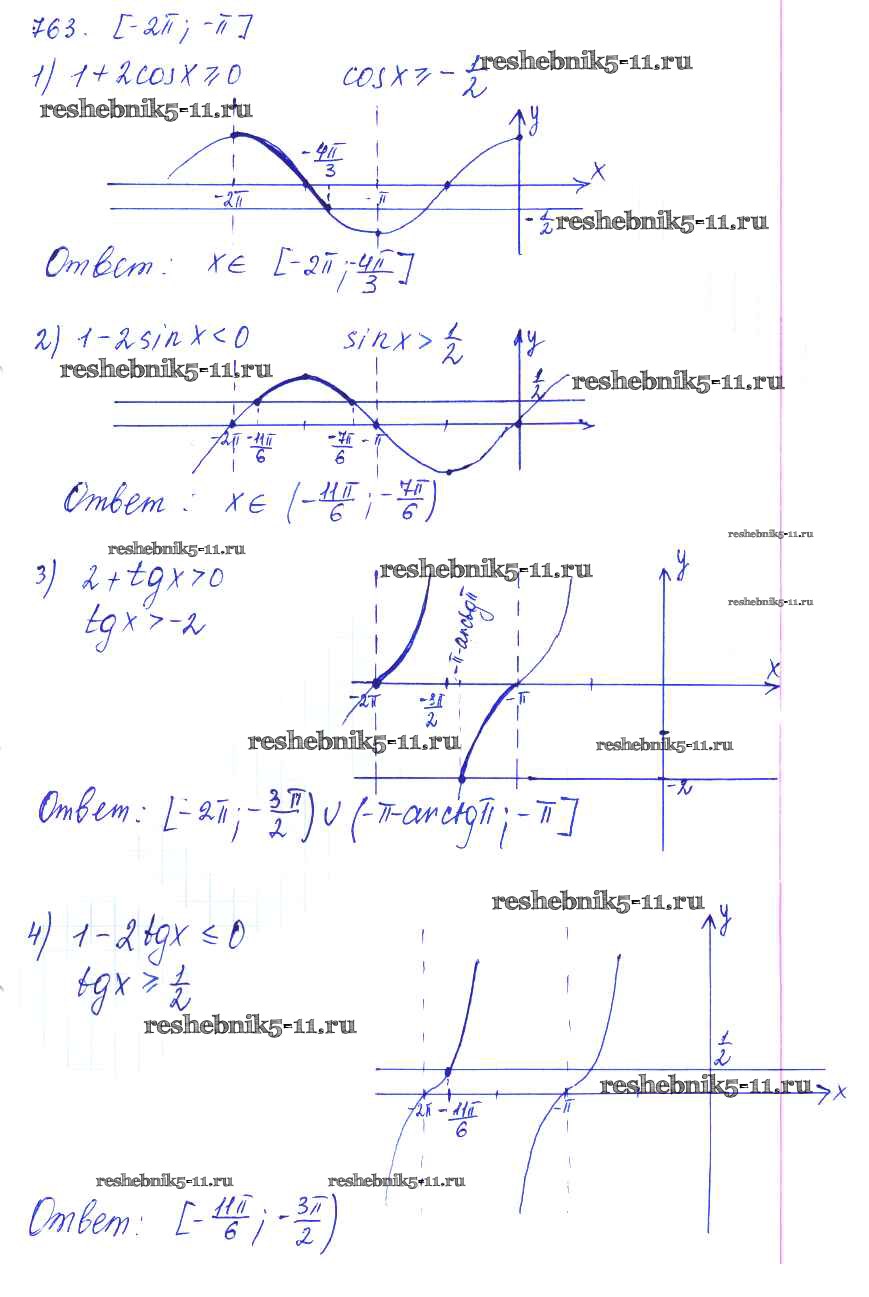 763. [-2π; -π]
1) 1+2cosx≥0 cosx≥-1/2
reshebnik5-11.ru
reshebnik5-11.ru
y
-4π/3
x
-2π -π
-1/2
reshebnik5-11.ru
Ответ: x∈ [-2π; -4π/3]
2) 1-2sinx<0 sinx>1/2
y
reshebnik5-11.ru
1/2
reshebnik5-11.ru
-2π -11π/6 -7π/6 -π
Ответ: x∈ (-11π/6; -7π/6)
reshebnik5-11.ru
reshebnik5-11.ru
3) 2+tgx>0
reshebnik5-11.ru
y
tgx>-2
reshebnik5-11.ru
-π-arctgπ
x
-2π -3π/2 -π
reshebnik5-11.ru
reshebnik5-11.ru
-2
Ответ: [-2π; -3π/2) ∪ (-π-arctgπ; -π]
reshebnik5-11.ru
y
4) 1-2tgx≤0
tgx≥1/2
reshebnik5-11.ru
1/2
reshebnik5-11.ru
x
-2π -11π/6 -π
reshebnik5-11.ru
reshebnik5-11.ru
Ответ: [-11π/6; -3π/2)